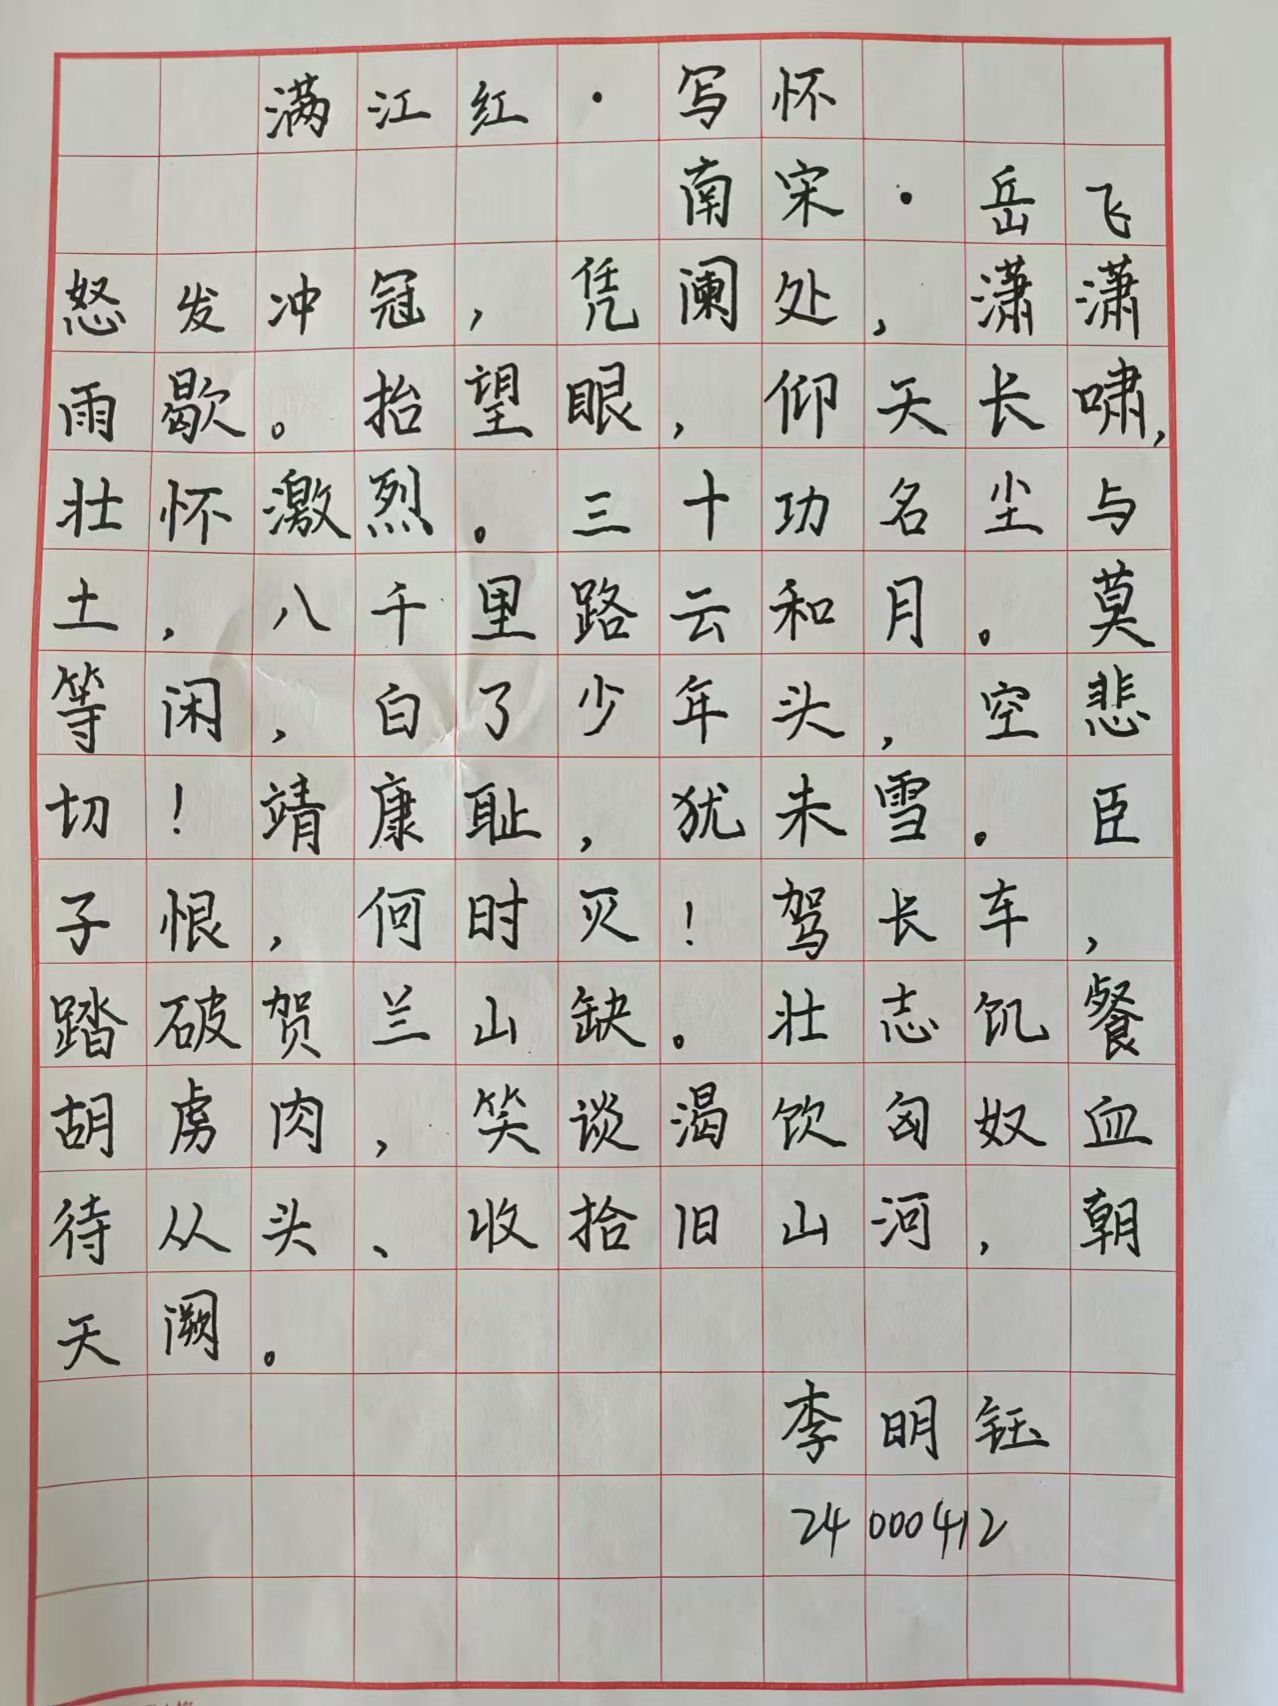 满江红·写怀
南宋·岳飞
怒发冲冠，凭阑处，潇潇
雨歇。抬望眼，仰天长啸，
壮怀激烈。三十功名尘与
土，八千里路云和月。莫
等闲，白了少年头，空悲
切！靖康耻，犹未雪。臣
子恨，何时灭！驾长车，
踏破贺兰山缺。壮志饥餐
胡虏肉，笑谈渴饮匈奴血
待从头、收拾旧山河，朝
天阙。
李明钰
24000412